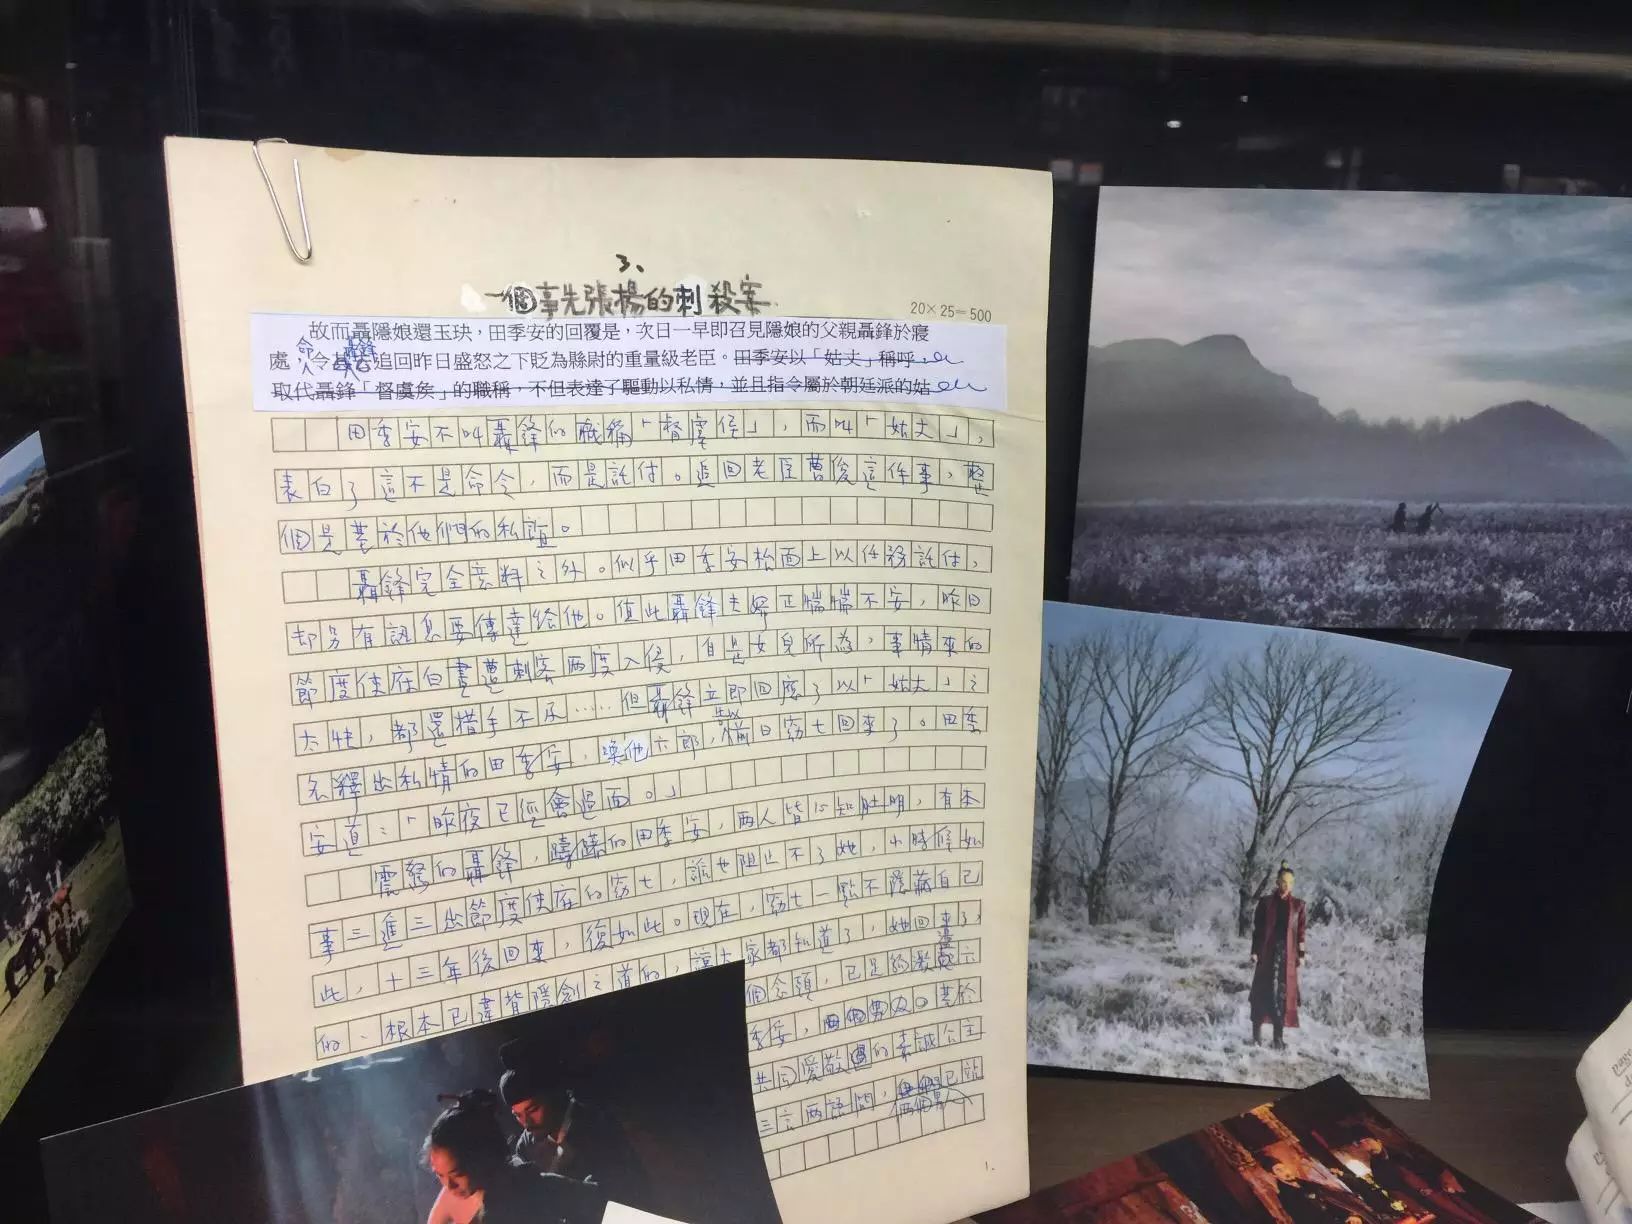 3、
一個事先張揚的刺殺案
20×25=500
故而聶隱娘還玉玦，田季安的回覆是，次日一早即召見隱娘的父親聶鋒於寢
處，命令聶鋒追回昨日盛怒之下貶為縣尉的重量級老臣。田季安以「姑丈」稱呼，
取代聶鋒「督虞侯」的職稱，不但表達了驅動以私情，並且指令屬於朝廷派的姑
田季安不叫聶鋒的職稱「督虞侯」，而叫「姑丈」，
表白了這不是命令，而是託付。追回老臣曹俊這件事，整
個是基於他們的私誼。
聶鋒完全意料之外。似乎田季安檯面上以任務託付，
却另有訊息要傳達給他。值此聶鋒夫婦正惴惴不安，昨日
節度使府白晝遭刺客兩度入侵，自是女兒所為，事情來的
太快，都還措手不及……但聶鋒立即回應了以「姑丈」之
名釋出私情的田季安，喚他六郎，告以前日窈七回來了。田季
安道：「昨夜已經會過面。」
震驚的聶鋒，躊躇的田季安，兩人皆心知肚明，有本
事三進三出節度使府的窈七，誰也阻止不了她，小時候如
此，十三年後回來，復如此。現在，窈七一點不隱藏自己
的、根本已違背隱劍之道的，讓大家都知道了，她回來了，
個念頭，已足夠激
六
季安，
基於
共同愛敬的嘉誠公主
三言兩語間，
兩個男人
已站
1.